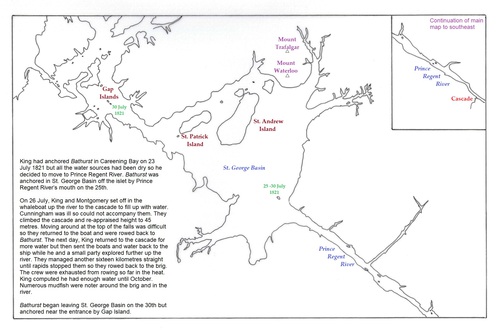 Continuation of main
map to southeast
Prince
Regent
River
Cascade
Mount
Trafalgar
Mount
Waterloo
Gap
Islands
30 July
1821
St. Andrew
Island
St. Patrick
Island
St. George Basin
25 -30 July
1821
Prince
Regent
River
King had anchored Bathurst in Careening Bay on 23
July 1821 but all the water sources had been dry so he
decided to move to Prince Regent River. Bathurst was
anchored in St. George Basin off the islet by Prince
Regent River's mouth on the 25th.
On 26 July, King and Montgomery set off in the
whaleboat up the river to the cascade to fill up with water.
Cunningham was ill so could not accompany them. They
climbed the cascade and re-appraised height to 45
metres. Moving around at the top of the falls was difficult
so they returned to the boat and were rowed back to
Bathurst. The next day, King returned to the cascade for
more water but then sent the boats and water back to the
ship while he and a small party explored further up the
river. They managed another sixteen kilometres straight
until rapids stopped them so they rowed back to the brig.
The crew were exhausted from rowing so far in the heat.
King computed he had enough water until October.
Numerous mudfish were noter around the brig and in the
river.
Bathurst began leaving St. George Basin on the 30th but
anchored near the entrance by Gap Island.